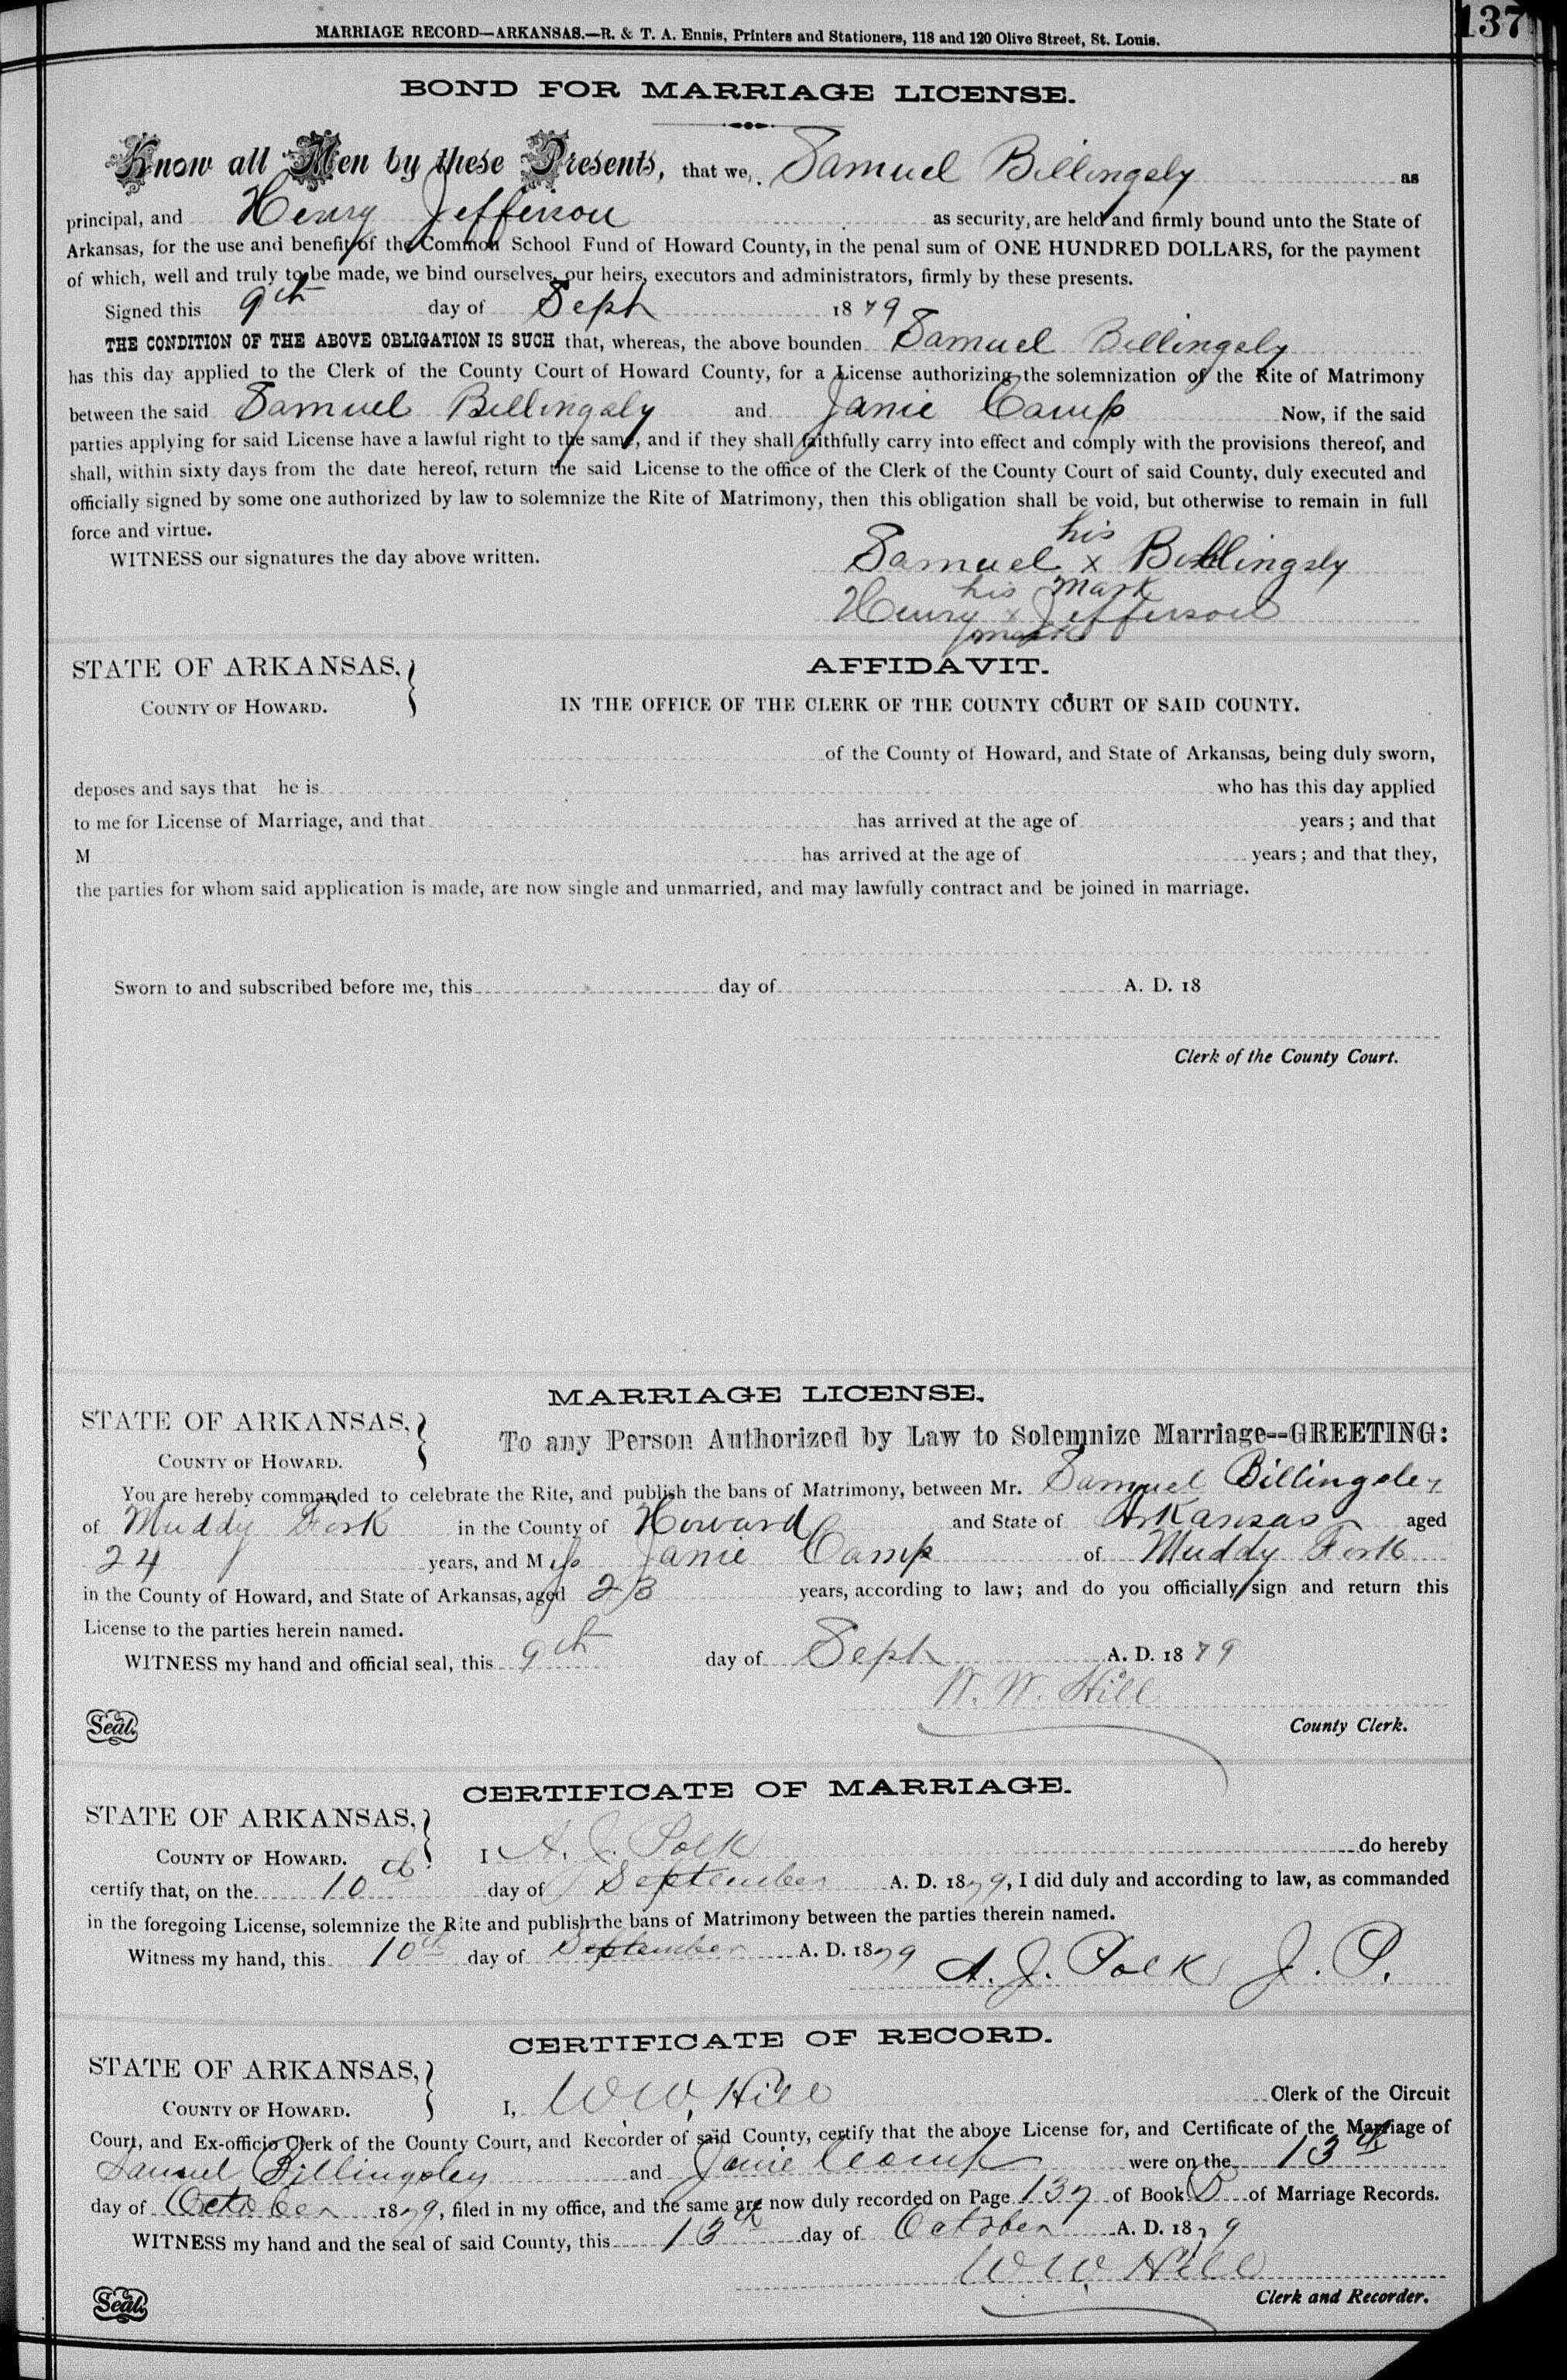 137
MARRIAGE RECORD—ARKANSAS.—R. & T. A. Ennis, Printers and Stationers, 118 and 120 Olive Street, St. Louis.
BOND FOR MARRIAGE LICENSE.
Know all Men by these Presents, that we, Samuel Billingsly as
principal, and Henry Jefferson as security, are held and firmly bound unto the State of
Arkansas, for the use and benefit of the Common School Fund of Howard County, in the penal sum of ONE HUNDRED DOLLARS, for the payment
of which, well and truly to be made, we bind ourselves, our heirs, executors and administrators, firmly by these presents.
Signed this 9th day of Sept 1879
THE CONDITION OF THE ABOVE OBLIGATION IS SUCH that, whereas, the above bounden Samuel Billingsly
has this day applied to the Clerk of the County Court of Howard County, for a License authorizing the solemnization of the Rite of Matrimony
between the said Samuel Billingsly and Janie Camp Now, if the said
parties applying for said License have a lawful right to the same, and if they shall faithfully carry into effect and comply with the provisions thereof, and
shall, within sixty days from the date hereof, return the said License to the office of the Clerk of the County Court of said County, duly executed and
officially signed by some one authorized by law to solemnize the Rite of Matrimony, then this obligation shall be void, but otherwise to remain in full
force and virtue.
his
WITNESS our signatures the day above written. Samuel x Billingsly
his mark
Henry x Jefferson
mark
STATE OF ARKANSAS, AFFIDAVIT.
COUNTY OF HOWARD. IN THE OFFICE OF THE CLERK OF THE COUNTY COURT OF SAID COUNTY.
of the County of Howard, and State of Arkansas, being duly sworn,
deposes and says that he is who has this day applied
to me for License of Marriage, and that has arrived at the age of years; and that
M has arrived at the age of years; and that they,
the parties for whom said application is made, are now single and unmarried, and may lawfully contract and be joined in marriage.
Sworn to and subscribed before me, this day of A. D. 18
Clerk of the County Court.
MARRIAGE LICENSE.
STATE OF ARKANSAS, To any Person Authorized by Law to Solemnize Marriage--GREETING:
COUNTY OF HOWARD.
You are hereby commanded to celebrate the Rite, and publish the bans of Matrimony, between Mr. Samuel Billingsley
of Muddy Fork in the County of Howard and State of Arkansas aged
24 years, and Miss Janie Camp of Muddy Fork
in the County of Howard, and State of Arkansas, aged 23 years, according to law; and do you officially sign and return this
License to the parties herein named.
WITNESS my hand and official seal, this 9th day of Sept A. D. 1879
W. W. Hill
Seal. County Clerk.
CERTIFICATE OF MARRIAGE.
STATE OF ARKANSAS,
COUNTY OF HOWARD. I A. J. Polk do hereby
certify that, on the 10th day of September A. D. 1879, I did duly and according to law, as commanded
in the foregoing License, solemnize the Rite and publish the bans of Matrimony between the parties therein named.
Witness my hand, this 10th day of September A. D. 1879 A. J. Polk J. P.
CERTIFICATE OF RECORD.
STATE OF ARKANSAS,
COUNTY OF HOWARD. I, W. W. Hill Clerk of the Circuit
Court, and Ex-officio Clerk of the County Court, and Recorder of said County, certify that the above License for, and Certificate of the Marriage of
Samuel Billingsley and Janie Camp were on the 13th
day of October 1879, filed in my office, and the same are now duly recorded on Page 137 of Book D of Marriage Records.
WITNESS my hand and the seal of said County, this 13th day of October A. D. 1879
W. W. Hill
Seal. Clerk and Recorder.